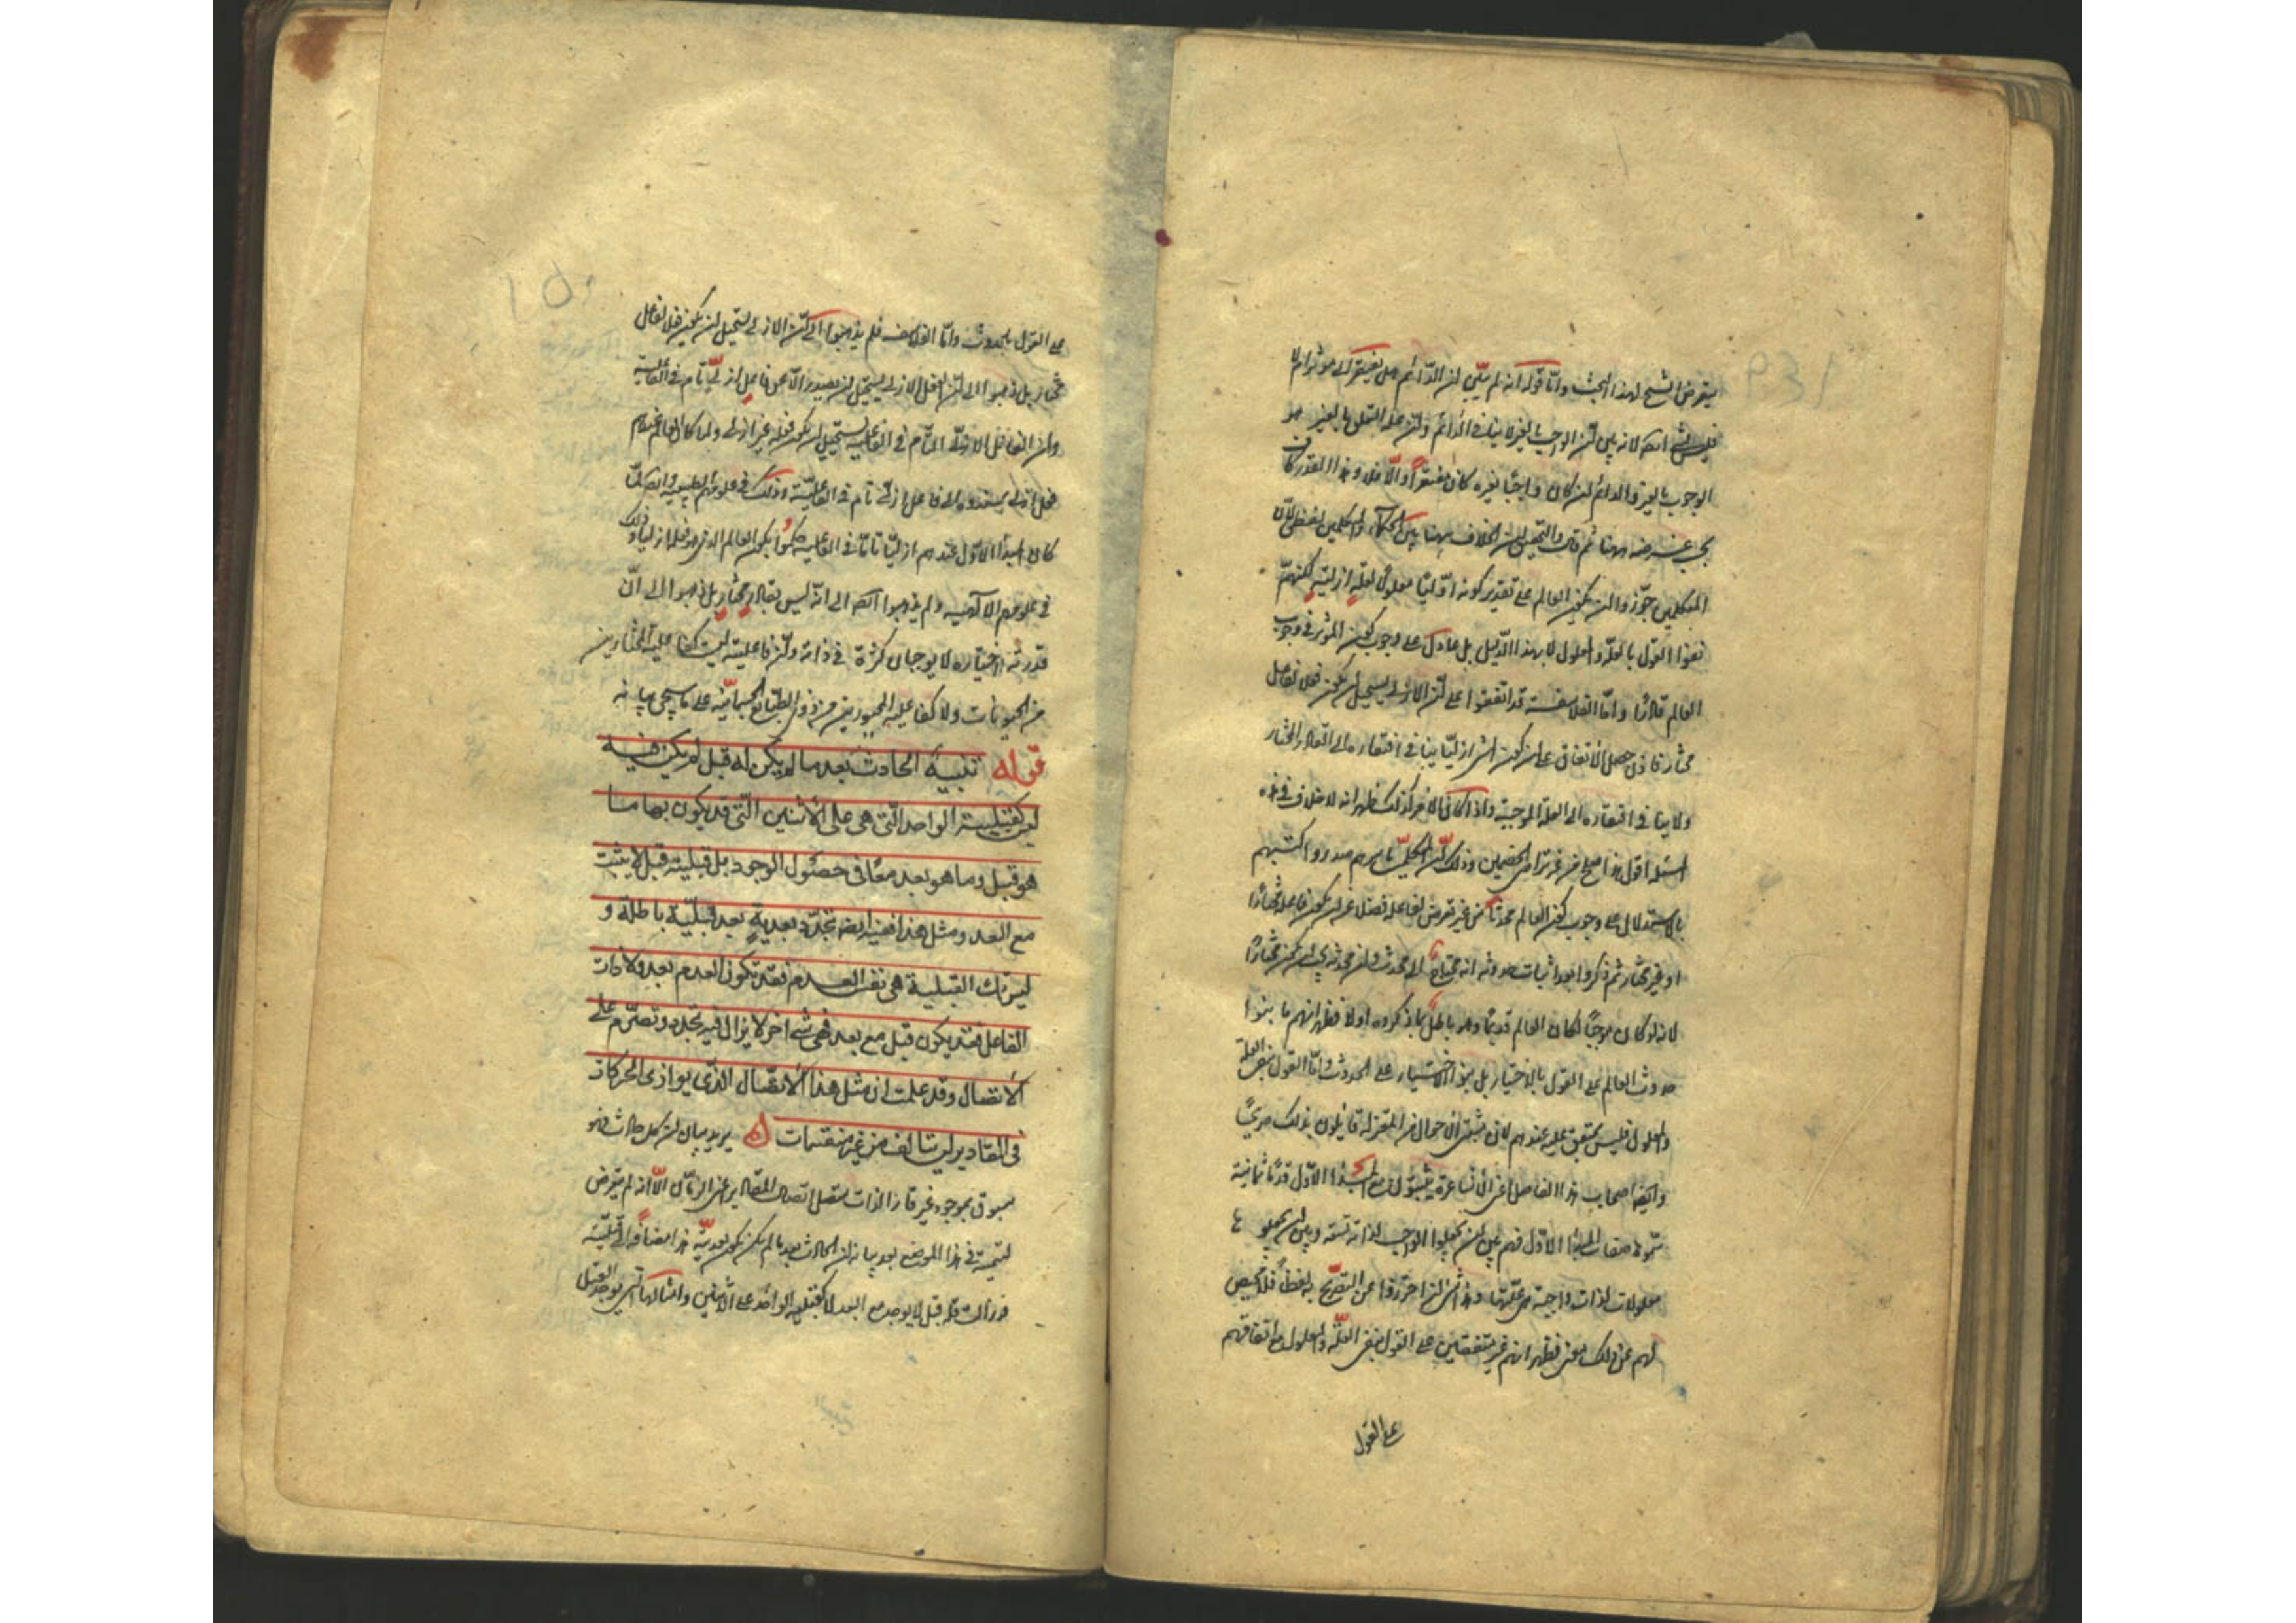 يتعرض الشيخ لهذا البحث واما قوله انه لم يبين ان الدائم هل يفتقر الى مؤثر ام لا
فليس بشئ ايضا لانه بين ان الوجوب بالغير لا ينافى الدائم وان علة التعلق بالغير هو
الوجوب بالغير والدائم ان كان واجبا بغيره كان مفتقرا والا فلا وهذا القدر كاف
بحسب غرضه ههنا ثم قال والتحقيق ان الخلاف ههنا بين الحكماء والمتكلمين لفظى لان
المتكلمين جوزوا ان يكون العالم على تقدير كونه ازليا معلولا لعلة ازلية لكنهم
نفوا القول بالعلة والمعلول لا بهذا الدليل بل بما دل على وجوب كون المؤثر فى وجود
العالم قادرا واما الفلاسفة فقد اتفقوا على ان الازلى يستحيل ان يكون فعلا لفاعل
مختار فاذن حصل الاتفاق على ان كون الشئ ازليا ينافى افتقاره الى القادر المختار
ولا ينافى افتقاره الى العلة الموجبة واذا كان الامر كذلك ظهر انه لا خلاف فى هذه
المسئلة اقول هذا صلح من غير تراضى الخصمين وذلك ان المتكلمين باسرهم صدروا كتبهم
بالاستدلال على وجوب كون العالم محدثا من غير تعرض لفاعله فضلا عن ان يكون فاعله مختارا
او غير مختار ثم ذكروا بعد اثبات حدوثه انه محتاج الى محدث وان محدثه يجب ان يكون مختارا
لانه لو كان موجبا لكان العالم قديما وهو باطل بما ذكروه اولا فظهر انهم ما بنوا
حدوث العالم على القول بالاختيار بل بنوا الاختيار على الحدوث واما القول بنفى العلة
والمعلول فليس بمتفق عليه عندهم لان مثبتى الاحوال من المعتزلة قايلون بذلك صريحا
وايضا اصحاب هذا الفاضل اعنى الاشاعرة يثبتون مع المبدأ الاول قدماء ثمانية
سموها صفات المبدأ الاول فهم بين ان يجعلوا الواجب لذاته تسعة وبين ان يجعلوها
معلولات لذات واجبة هى علتها وهذا شئ ان احترزوا عن التصريح به لفظا فلا محيص
لهم عن ذلك معنى فظهر انهم غير متفقين على القول بنفى العلة والمعلول مع اتفاقهم
على القول
على القول بالحدوث واما الفلاسفة فلم يذهبوا الى ان الازلى يستحيل ان يكون فعلا لفاعل
مختار بل ذهبوا الى ان الفعل الازلى يستحيل ان يصدر الا عن فاعل ازلى تام فى الفاعلية
وان الفاعل الازلى التام فى الفاعلية يستحيل ان يكون فعله غير ازلى ولما كان العالم عندهم
فعلا ازليا اسندوه الى فاعل ازلى تام فى الفاعلية وذلك فى علومهم الطبيعية وايضا لما
كان المبدأ الاول عندهم ازليا تاما فى الفاعلية حكموا بكون العالم الذى هو فعله ازليا وذلك
فى علومهم الالهية ولم يذهبوا ايضا الى انه ليس بقادر مختار بل ذهبوا الى ان
قدرته واختياره لا يوجبان كثرة فى ذاته وان فاعليته ليست كفاعلية المختارين
من الحيوانات ولا كفاعلية المجبورين من ذوى الطبايع الجسمانية على ما سيجئ بيانه
قوله تنبيه الحادث بعد ما لم يكن له قبل لم يكن فيه
ليس كقبلية الواحد التى هى على الاثنين التى قد يكون بها ما
هو قبل وما هو بعد معا فى حصول الوجود بل قبلية قبل لا يثبت
مع البعد ومثل هذا ففيه ايضا تجدد بعدية بعد قبلية باطلة و
ليس تلك القبلية هى نفس العدم فقد يكون العدم بعد ولا ذات
الفاعل فقد يكون قبل مع بعد فهى شئ اخر لا يزال فيه تجدد وتصرم على
الاتصال وقد علمت ان مثل هذا الاتصال الذى يوازى الحركات
فى المقادير لن يتالف من غير منقسمات يريد بيان ان كل حادث فهو
مسبوق بموجود غير قار الذات متصل اتصال المقادير اعنى الزمان الا انه لم يتعرض
لتسميته فى هذا الموضع بعد وبيانه ان الحادث بعد ما لم يكن تكون بعديته هذه مضافة الى قبلية
قد زالت فله قبل لا يوجد مع البعد لا كقبلية الواحد على الاثنين وامثالها التى يوجد القبل